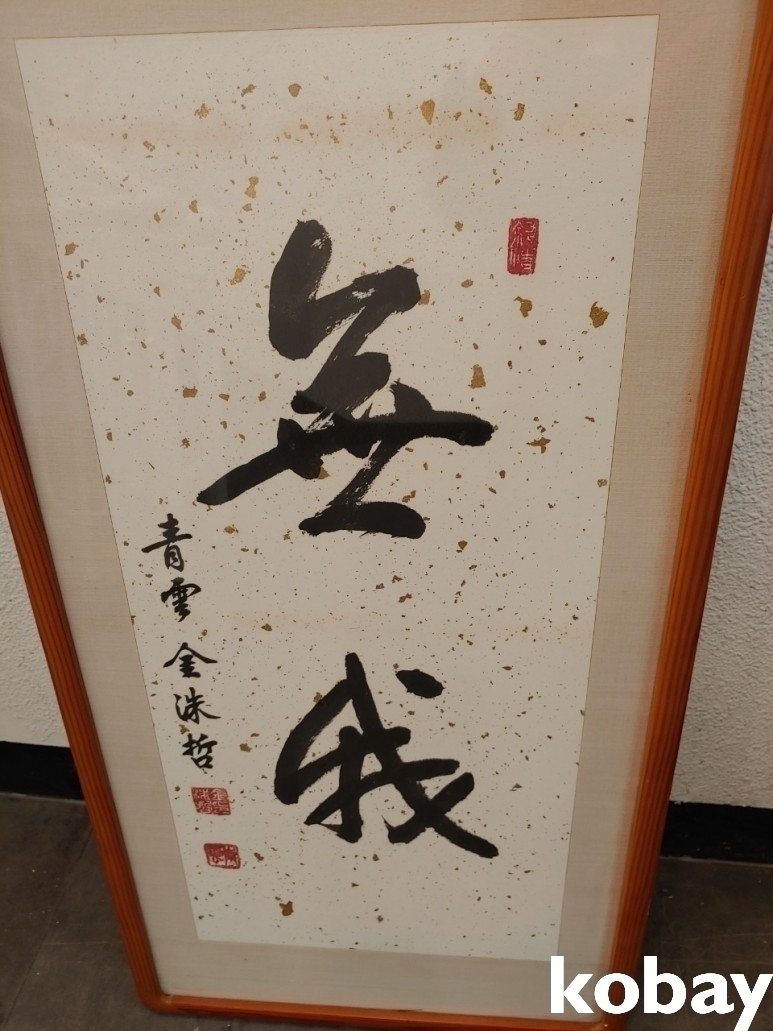 無
我
青雲 金洙哲
kobay